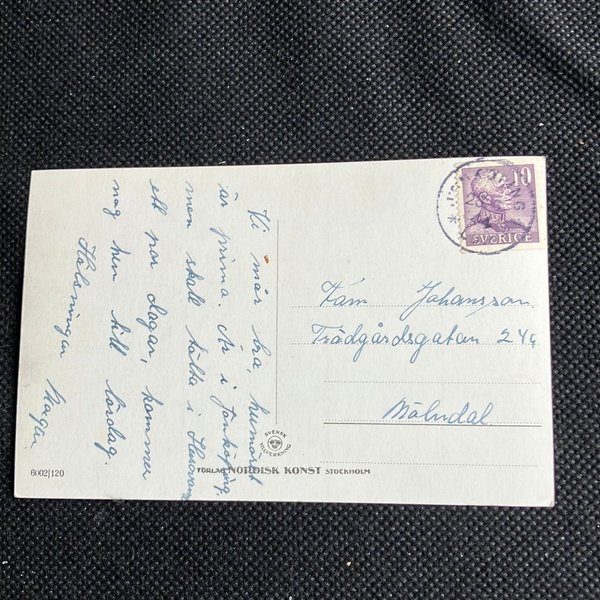 Vi mår bra, humöret
är prima. Är i Jönköping,
men skall tälta i
ett par dagar, kommer
nog hem till lördag.
Hälsningar
10
SVERIGE
Johansson
Trädgårdsgatan 24
Mölndal
SVENSK
TILLVERKNING
6002/120
FÖRLAG NORDISK KONST STOCKHOLM